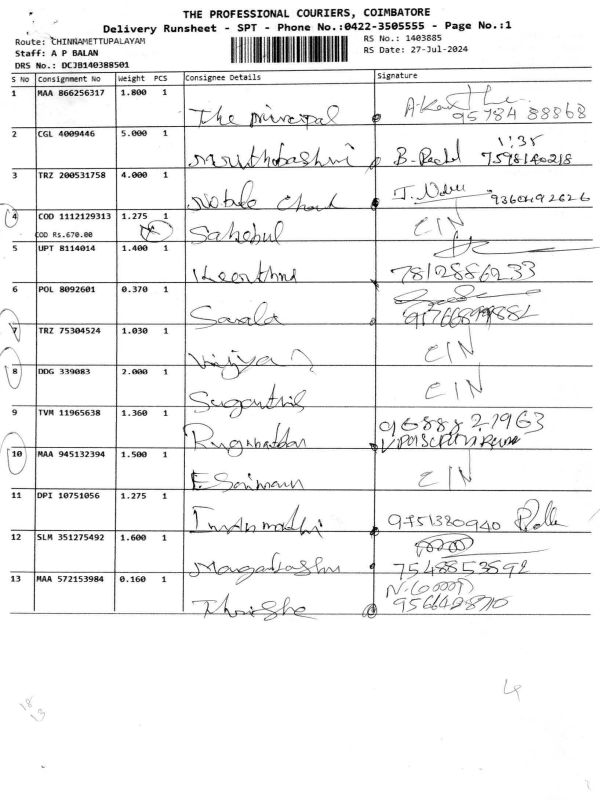 THE PROFESSIONAL COURIERS, COIMBATORE
Delivery Runsheet - SPT - Phone No.:0422-3505555 - Page No.:1
Route: CHINNAMETTUPALAYAM
Staff: A P BALAN
DRS No.: DCJB140388501
RS No.: 1403885
RS Date: 27-Jul-2024
S No Consignment No Weight PCS Consignee Details Signature
1 MAA 866256317 1.800 1 The principal
95784 88868
2 CGL 4009446 5.000 1 1:35
7598140218
3 TRZ 200531758 4.000 1
9360492626
4 COD 1112129313 1.275 1 CIN
COD Rs.670.00
5 UPT 8114014 1.400 1 Keerthna 7812886233
6 POL 8092601 0.370 1 Sarala
7 TRZ 75304524 1.030 1 Vijaya CIN
8 DDG 339083 2.000 1 CIN
9 TVM 11965638 1.360 1 96888 21963
10 MAA 945132394 1.500 1 CIN
11 DPI 10751056 1.275 1 9751380940
12 SLM 351275492 1.600 1 7548853592
13 MAA 572153984 0.160 1
4
18
13